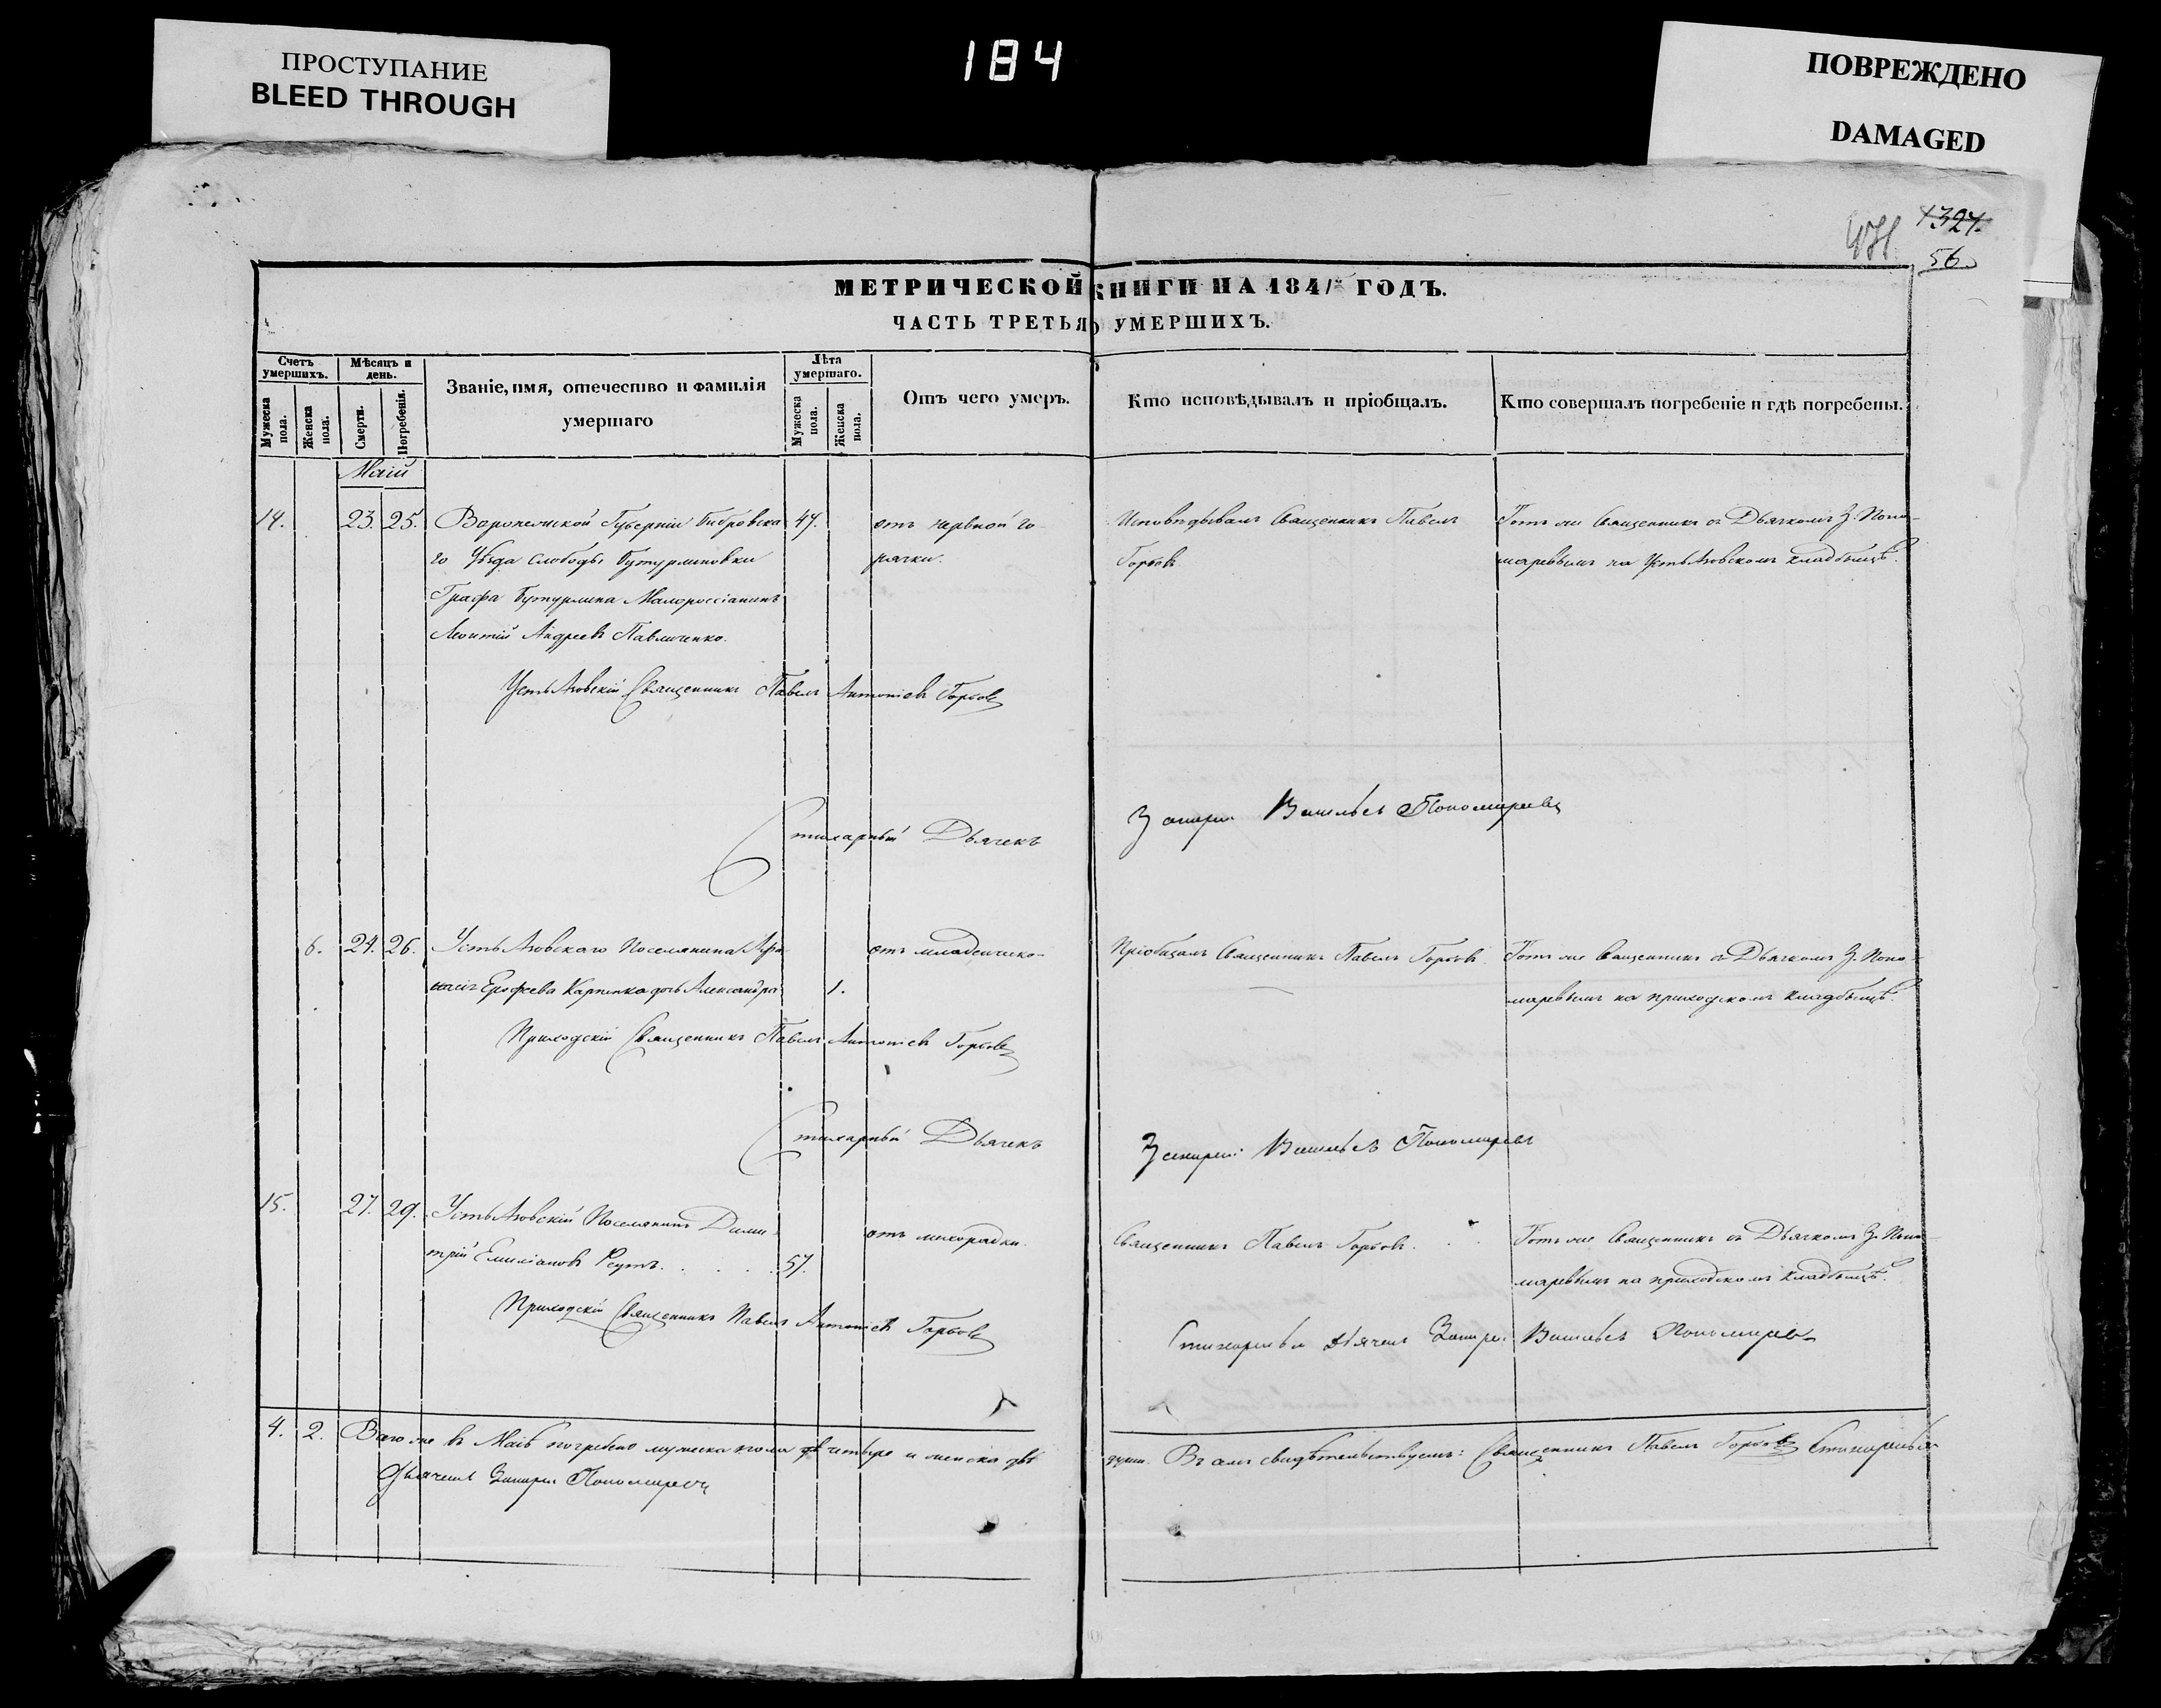 ПРОСТУПАНИЕ
BLEED THROUGH
184
ПОВРЕЖДЕНО
DAMAGED
1327.
56.
МЕТРИЧЕСКОЙ КНИГИ НА 1841 ГОДЪ.
ЧАСТЬ ТРЕТЬЯ О УМЕРШИХЪ.
Счетъ умершихъ.
Мѣсяцъ и день.
Званіе, имя, отечество и фамилія умершаго
Лѣта умершаго.
Отъ чего умеръ.
Кто исповѣдывалъ и пріобщалъ.
Кто совершалъ погребеніе и гдѣ погребены.
Мужеска пола.
Женска пола.
Смерти.
Погребенія.
Мужеска пола.
Женска пола.
Маій
14. 23. 25. Воронежской Губерніи Бобровска 47. отъ нервной го- Исповѣдывалъ Священникъ Павелъ Тотъ же Священникъ съ Дьячкомъ З. Поно-
го Уѣзда Слободы Бутурлиновки рячки. Горбовъ маревымъ на УстьАзовскомъ кладбищѣ.
Графа Бутурлина Малороссіянинъ
Леонтій Андреевъ Павличенко.
УстьАзовскій Священникъ Павелъ Антоніевъ Горбовъ
Стихарный Дьячекъ Захарій Васильевъ Пономаревъ
6. 24. 26. УстьАзовскаго Поселянина Афа- отъ младенческо- Пріобщалъ Священникъ Павелъ Горбовъ. Тотъ же Священникъ съ Дьячкомъ З. Поно-
насія Ерофеева Карпенка дочь Александра 1. маревымъ на приходскомъ кладбищѣ.
Приходскій Священникъ Павелъ Антоніевъ Горбовъ
Стихарный Дьячекъ Захарій Васильевъ Пономаревъ
15. 27. 29. УстьАзовскій Поселянинъ Дими- отъ лихорадки. Священникъ Павелъ Горбовъ. Тотъ же Священникъ съ Дьячкомъ З. Поно-
трій Емиліановъ Реутъ. 57. маревымъ на приходскомъ кладбищѣ.
Приходскій Священникъ Павелъ Антоніевъ Горбовъ
Стихарный Дьячекъ Захарій Васильевъ Пономаревъ
4. 2. Всего же въ Маіѣ погребено мужеска пола четыре и женска двѣ души. Въ семъ свидѣтельствуемъ: Священникъ Павелъ Горбовъ Стихарный
Дьячекъ Захарій Пономаревъ